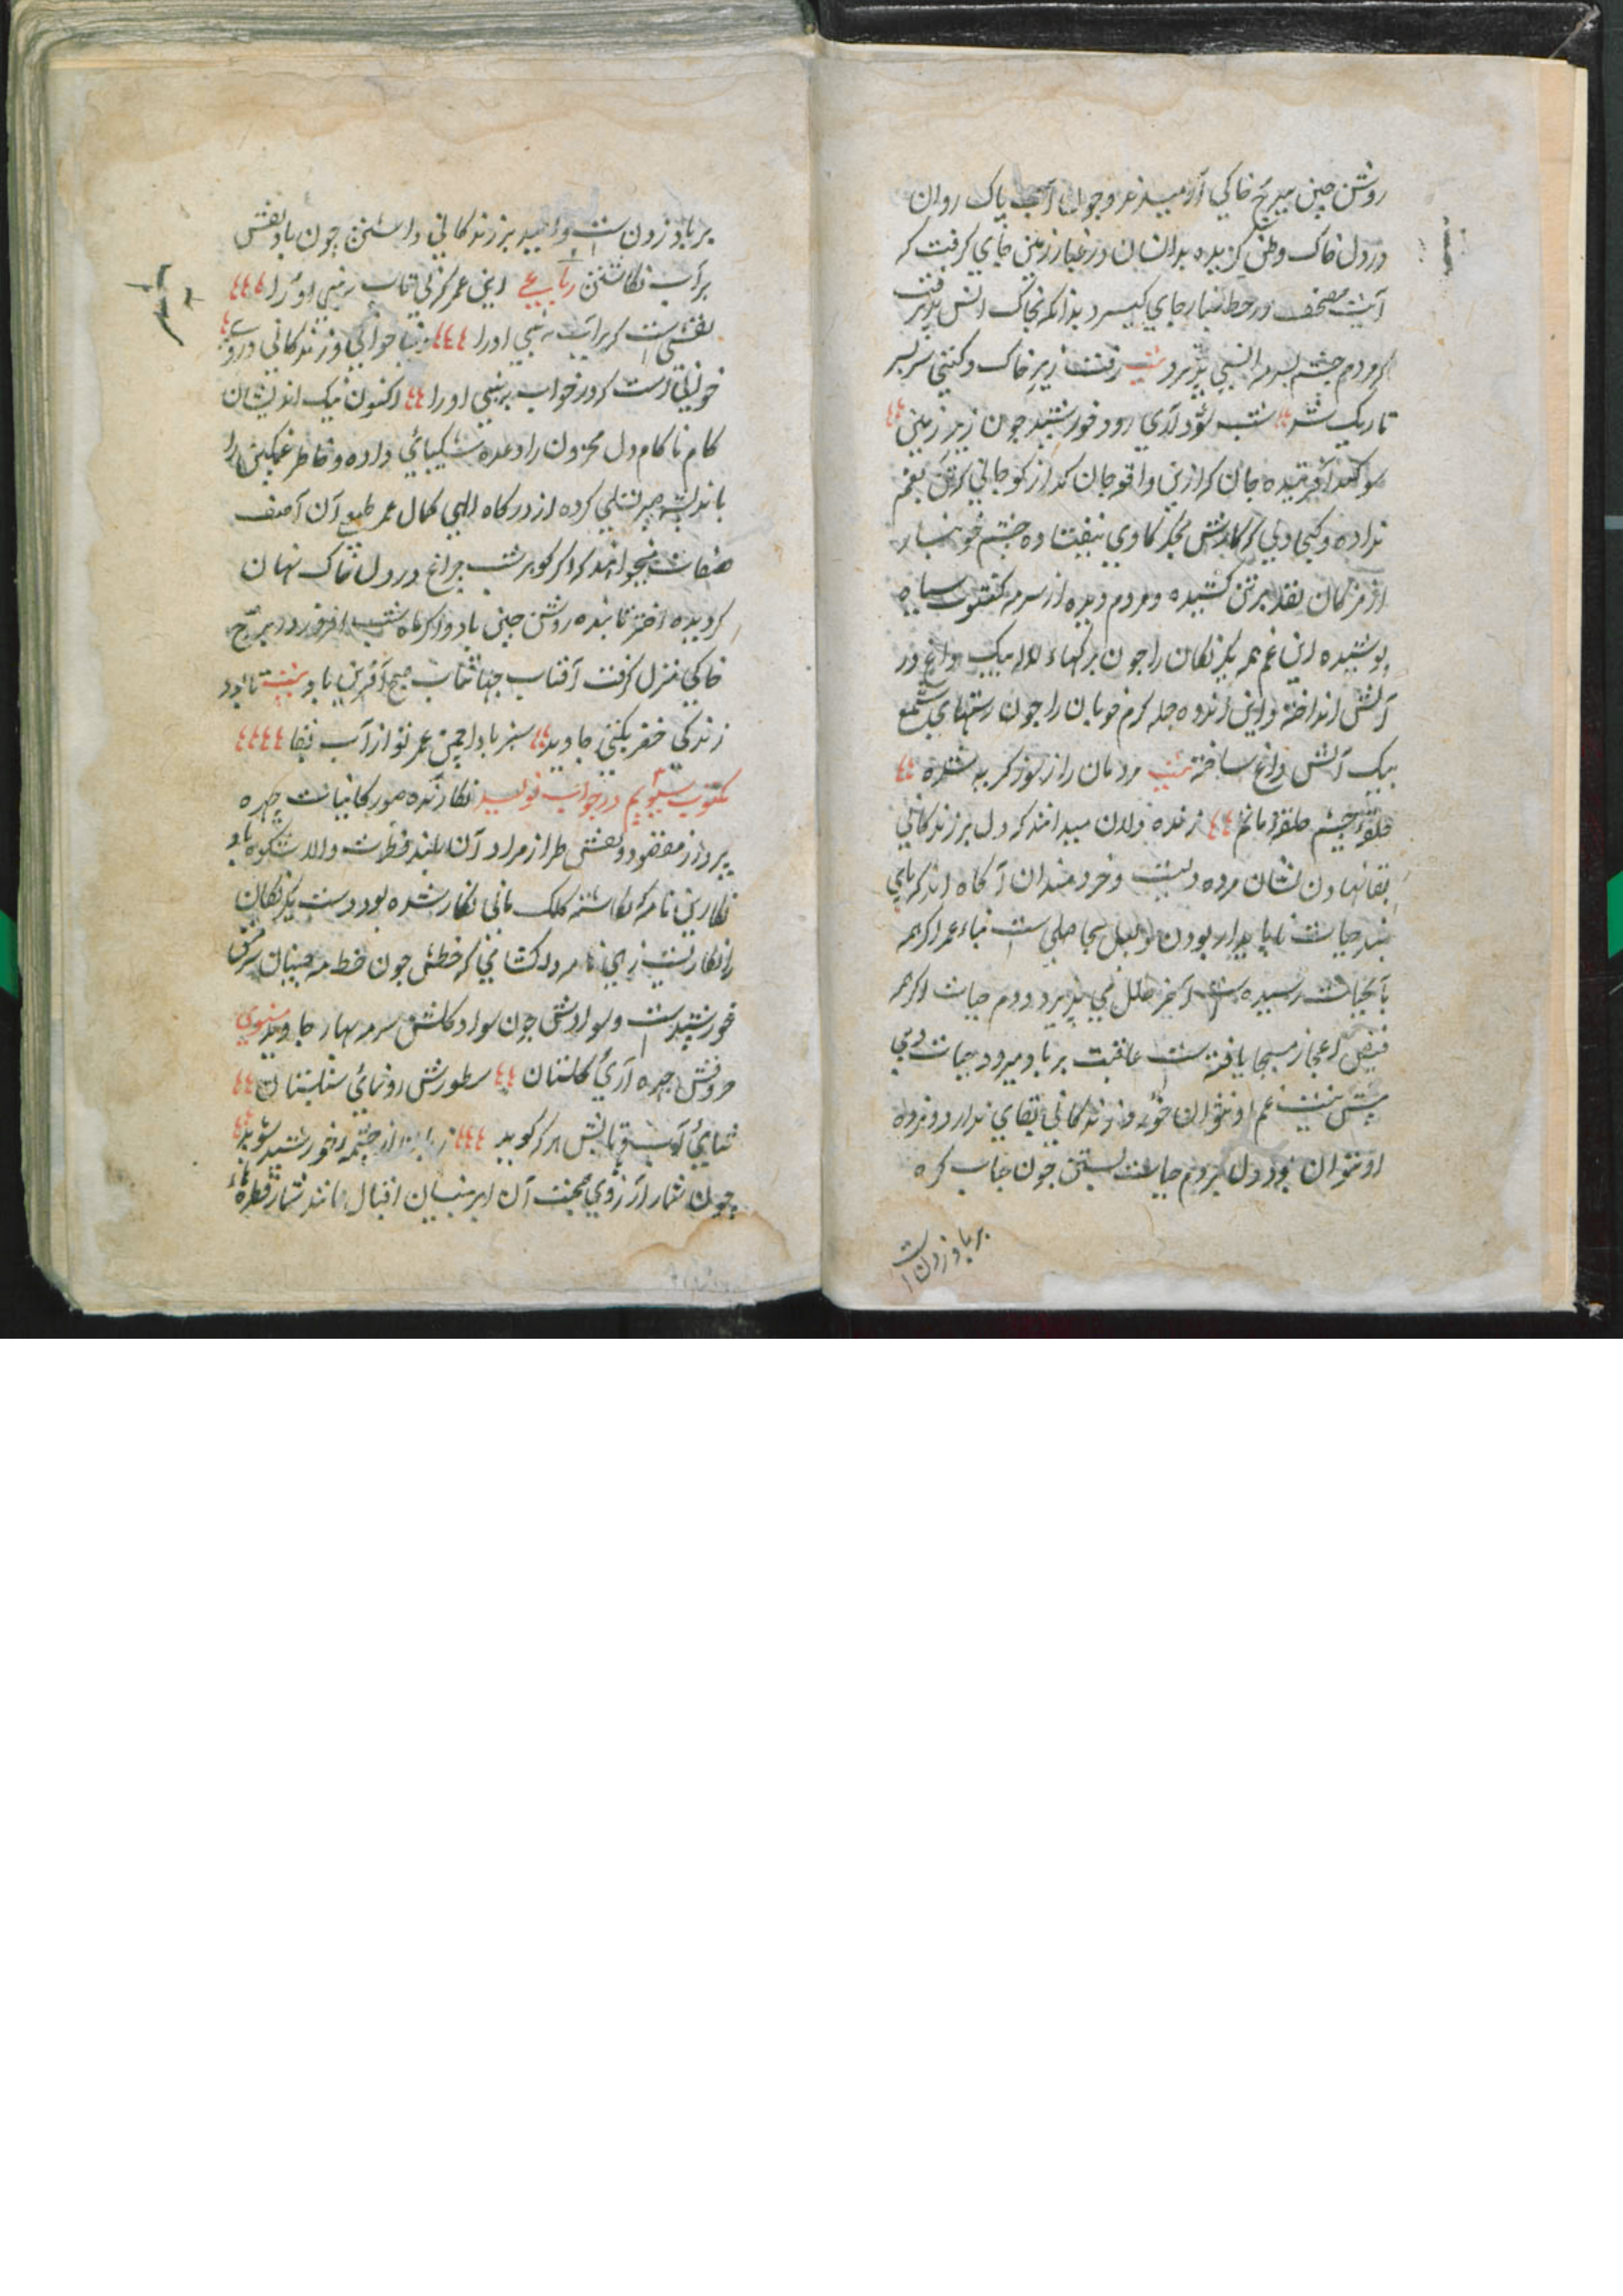 روشن جبین ببرج خاکی آرمیده و جوان آب پاک روان
در دل خاک وطن گزیده بدانسان در غبار زمین جای گرفت که
آیت مصحف در خط غبار جای گیرد بدانکه بخاک انس پذیرفت
که مردم چشم بسرمه انس پذیرد بیت رفت زیر خاک و گیتی سربسر
تاریک شد شب شود آری رود خورشید چون زیر زمین
سوگند آفریننده جان که ازین واقعه جان گداز کو جانی که تن بغم
نداده و کجا دلی که کارش بجگر کاوی نیفتاده چشم خونبار
از مژگان بقد بر تن کشیده و مردم دیده از سرمه کسوت سیاه
پوشیده این غم همه یکرنگان را چون برگهاء لاله بیک داغ در
آتش انداخته و این اندوه جمله گرم خویان را چون رشتهای شمع
بیک آتش داغ ساخته بیت مردمان را ز سوز گریه شده
حلقهٔ چشم حلقهٔ ماتم زنده دلان میدانند که دل بر زندگانی
بقا نهادن نشان مرده دلیست و خردمندان آگاه اند که پای
بند حیات ناپایدار بودن بیحاصلی است بناء عمر اگر همه
بآبحیات رسیده است آخر خلل می پذیرد و دم حیات اگر همه
فیض اعجاز مسیحا یافته است عاقبت بر باد میرود حیات دمی
بیش نیست غم او نتوان خورد و زندگانی بقای ندارد و مرده
او نتوان بود دل بر دم حیات بستن چون حباب گره
بر باد زدن است
بر باد زدن است و امید بر زندگانی داشتن چون باد نقش
بر آب نگاشتن رباعی این عمر که بی نقاب بینی او را
نقشی است که بر آب ببینی او را دنیا خوابی و زندگانی در وی
خوابی است که در خواب ببینی او را اکنون نیک اندیشان
کام ناکام دل محزون را وعده شکیبائی داده و خاطر غمگین را
باندیشه صبر تسلی کرده از درگاه الهی کمال عمر طبع آن آصف
صفات میخواهند که اگر گوهر شب چراغ در دل خاک نهان
گردیده اختر تابنده روشن جبین باد و اگر ماه شب افروز در برج
خاکی منزل گرفت آفتاب جهانتاب صبح آفرین باد بیت تا بود
زندگی خضر بگیتی جاوید سبز بادا چمن عمر تو از آب بقا
مکتوب سیویم در جواب نویسد نگارنده صور کاینات چهره
پرداز مقصود و نقش طراز مراد آن بلند فطرت والا شکوه باد
نگارین نامه که نگاشته کلک مانی نگار شده بود دست یکرنگان
را نگار بست زهی نامه دلگشائی که خطش چون خط مه جبینان سرمشق
خورشیدست و سوادش چون سواد گلشن سرمه بهار جاوید مثنوی
حروفش چهره آرای گلستان سطورش رونمای سنبلستان
ثنای آب و تابش هر که گوید زبان از چشمه خورشید شوید
چون شمار آرزوی صحبت آن ابر نیسان اقبال مانند شمار قطره هاء